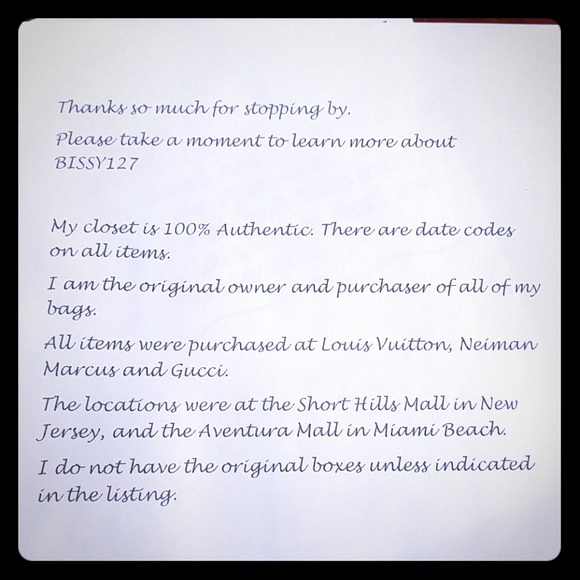 Thanks so much for stopping by.
Please take a moment to learn more about
BISSY127
My closet is 100% Authentic. There are date codes
on all items.
I am the original owner and purchaser of all of my
bags.
All items were purchased at Louis Vuitton, Neiman
Marcus and Gucci.
The locations were at the Short Hills Mall in New
Jersey, and the Aventura Mall in Miami Beach.
I do not have the original boxes unless indicated
in the listing.